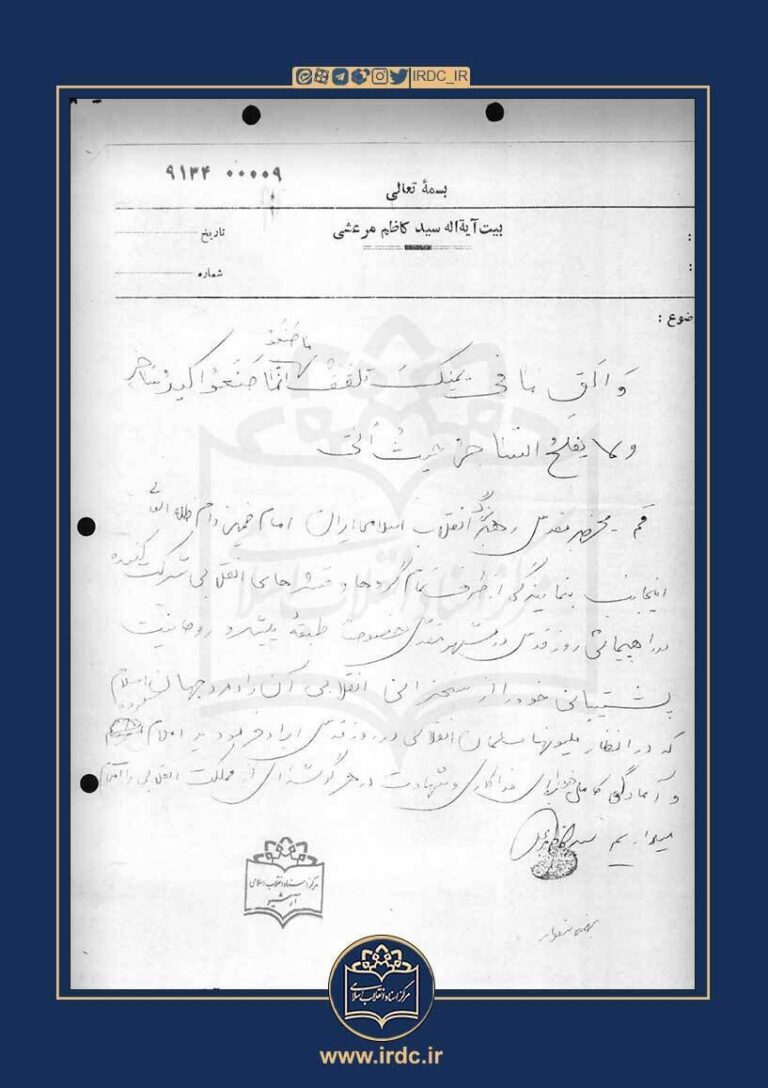 IRDC_IR
۹۱۳۴ ۰۰۰۰۹
بسمهٔ تعالی
بیت آیة‌اله سید کاظم مرعشی
تاریخ
شماره
ضوع :
ما صنعو
وَ اَلقِ ما فی یمینک تلقف انّما صَنَعوا کید ساحر
و لا یفلح الساحر حیث اتی
قم - محضر مقدس رهبر بزرگ انقلاب اسلامی ایران امام خمینی دام ظله العالی
اینجانب بنمایندگی از طرف تمام گروها و قشرهای انقلابی شرکت کننده
در راهپیمائی روز قدس در مشهد مقدس خصوصاً طبقهٔ پیشرو روحانیت
پشتیبانی خود را از سخنرانی انقلابی آن رادمرد جهان اسلام
که در انظار ملیونها مسلمان انقلابی در روز قدس ایراد فرمودید اعلام نموده
و آمادگی کامل خود برای فداکاری و شهادت در هر گوشه‌ای از مملکت انقلابی را اعلام
میداریم سید کاظم مرعشی
مرکز اسناد انقلاب اسلامی
آرشیو
مرکز اسناد انقلاب اسلامی
www.irdc.ir